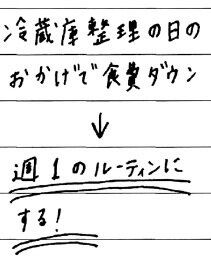 冷蔵庫整理の日の
おかげで食費ダウン
↓
週1のルーティンに
する!